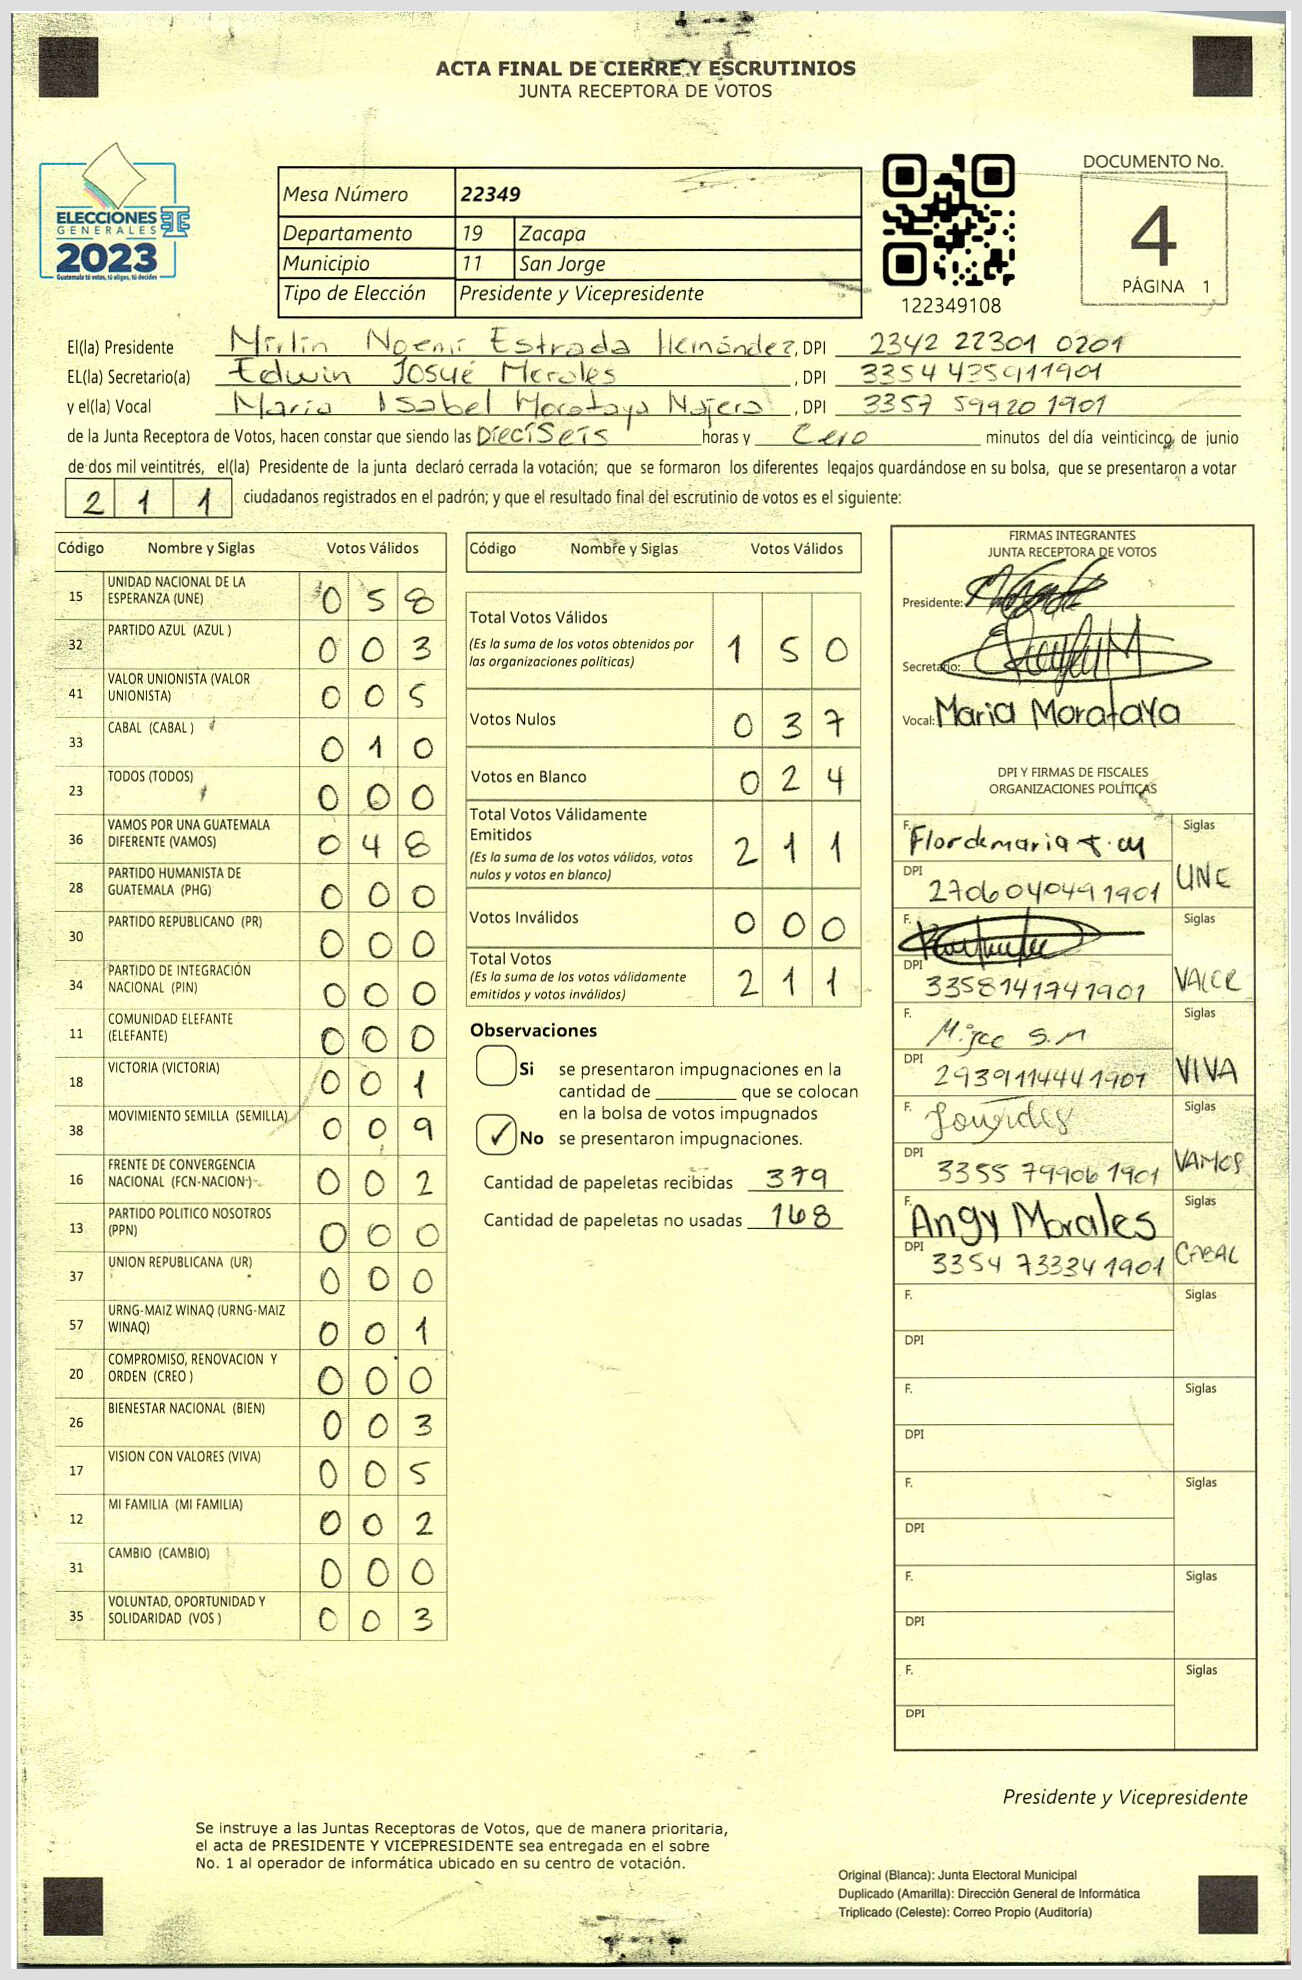 ACTA FINAL DE CIERRE Y ESCRUTINIOS
JUNTA RECEPTORA DE VOTOS
ELECCIONES
GENERALES
2023
Guatemala tú votas, tú eliges, tú decides
Mesa Número 22349
Departamento 19 Zacapa
Municipio 11 San Jorge
Tipo de Elección Presidente y Vicepresidente
122349108
DOCUMENTO No.
4
PÁGINA 1
El(la) Presidente Mirlin Noemi Estrada Hernández, DPI 2342 22301 0201
EL(la) Secretario(a) Edwin Josué Morales , DPI 3354 435911901
y el(la) Vocal Maria Isabel Morataya Najera , DPI 3357 59920 1901
de la Junta Receptora de Votos, hacen constar que siendo las DieciSeis horas y Cero minutos del día veinticinco de junio
de dos mil veintitrés, el(la) Presidente de la junta declaró cerrada la votación; que se formaron los diferentes legajos guardándose en su bolsa, que se presentaron a votar
2 1 1 ciudadanos registrados en el padrón; y que el resultado final del escrutinio de votos es el siguiente:
Código Nombre y Siglas Votos Válidos
15 UNIDAD NACIONAL DE LA ESPERANZA (UNE) 0 5 8
32 PARTIDO AZUL (AZUL ) 0 0 3
41 VALOR UNIONISTA (VALOR UNIONISTA) 0 0 5
33 CABAL (CABAL ) 0 1 0
23 TODOS (TODOS) 0 0 0
36 VAMOS POR UNA GUATEMALA DIFERENTE (VAMOS) 0 4 8
28 PARTIDO HUMANISTA DE GUATEMALA (PHG) 0 0 0
30 PARTIDO REPUBLICANO (PR) 0 0 0
34 PARTIDO DE INTEGRACIÓN NACIONAL (PIN) 0 0 0
11 COMUNIDAD ELEFANTE (ELEFANTE) 0 0 0
18 VICTORIA (VICTORIA) 0 0 1
38 MOVIMIENTO SEMILLA (SEMILLA) 0 0 9
16 FRENTE DE CONVERGENCIA NACIONAL (FCN-NACION) 0 0 2
13 PARTIDO POLITICO NOSOTROS (PPN) 0 0 0
37 UNION REPUBLICANA (UR) 0 0 0
57 URNG-MAIZ WINAQ (URNG-MAIZ WINAQ) 0 0 1
20 COMPROMISO, RENOVACION Y ORDEN (CREO ) 0 0 0
26 BIENESTAR NACIONAL (BIEN) 0 0 3
17 VISION CON VALORES (VIVA) 0 0 5
12 MI FAMILIA (MI FAMILIA) 0 0 2
31 CAMBIO (CAMBIO) 0 0 0
35 VOLUNTAD, OPORTUNIDAD Y SOLIDARIDAD (VOS ) 0 0 3
Código Nombre y Siglas Votos Válidos
Total Votos Válidos 1 5 0
(Es la suma de los votos obtenidos por
las organizaciones políticas)
Votos Nulos 0 3 7
Votos en Blanco 0 2 4
Total Votos Válidamente
Emitidos 2 1 1
(Es la suma de los votos válidos, votos
nulos y votos en blanco)
Votos Inválidos 0 0 0
Total Votos 2 1 1
(Es la suma de los votos válidamente
emitidos y votos inválidos)
Observaciones
Si se presentaron impugnaciones en la
cantidad de ________ que se colocan
en la bolsa de votos impugnados
✓ No se presentaron impugnaciones.
Cantidad de papeletas recibidas 379
Cantidad de papeletas no usadas 168
FIRMAS INTEGRANTES
JUNTA RECEPTORA DE VOTOS
Presidente:
Secretario:
Vocal: Maria Morataya
DPI Y FIRMAS DE FISCALES
ORGANIZACIONES POLÍTICAS
F. Flordemaria Siglas
DPI 270604049 1901 UNE
F. Siglas
DPI 3358141741901 VALOR
F. Siglas
DPI 2939114441901 VIVA
F. Lourdes Siglas
DPI 3355 79906 1901 VAMOS
F. Angy Morales Siglas
DPI 3354 73334 1901 CABAL
F. Siglas
DPI
F. Siglas
DPI
F. Siglas
DPI
F. Siglas
DPI
F. Siglas
DPI
Presidente y Vicepresidente
Se instruye a las Juntas Receptoras de Votos, que de manera prioritaria,
el acta de PRESIDENTE Y VICEPRESIDENTE sea entregada en el sobre
No. 1 al operador de informática ubicado en su centro de votación.
Original (Blanca): Junta Electoral Municipal
Duplicado (Amarilla): Dirección General de Informática
Triplicado (Celeste): Correo Propio (Auditoría)